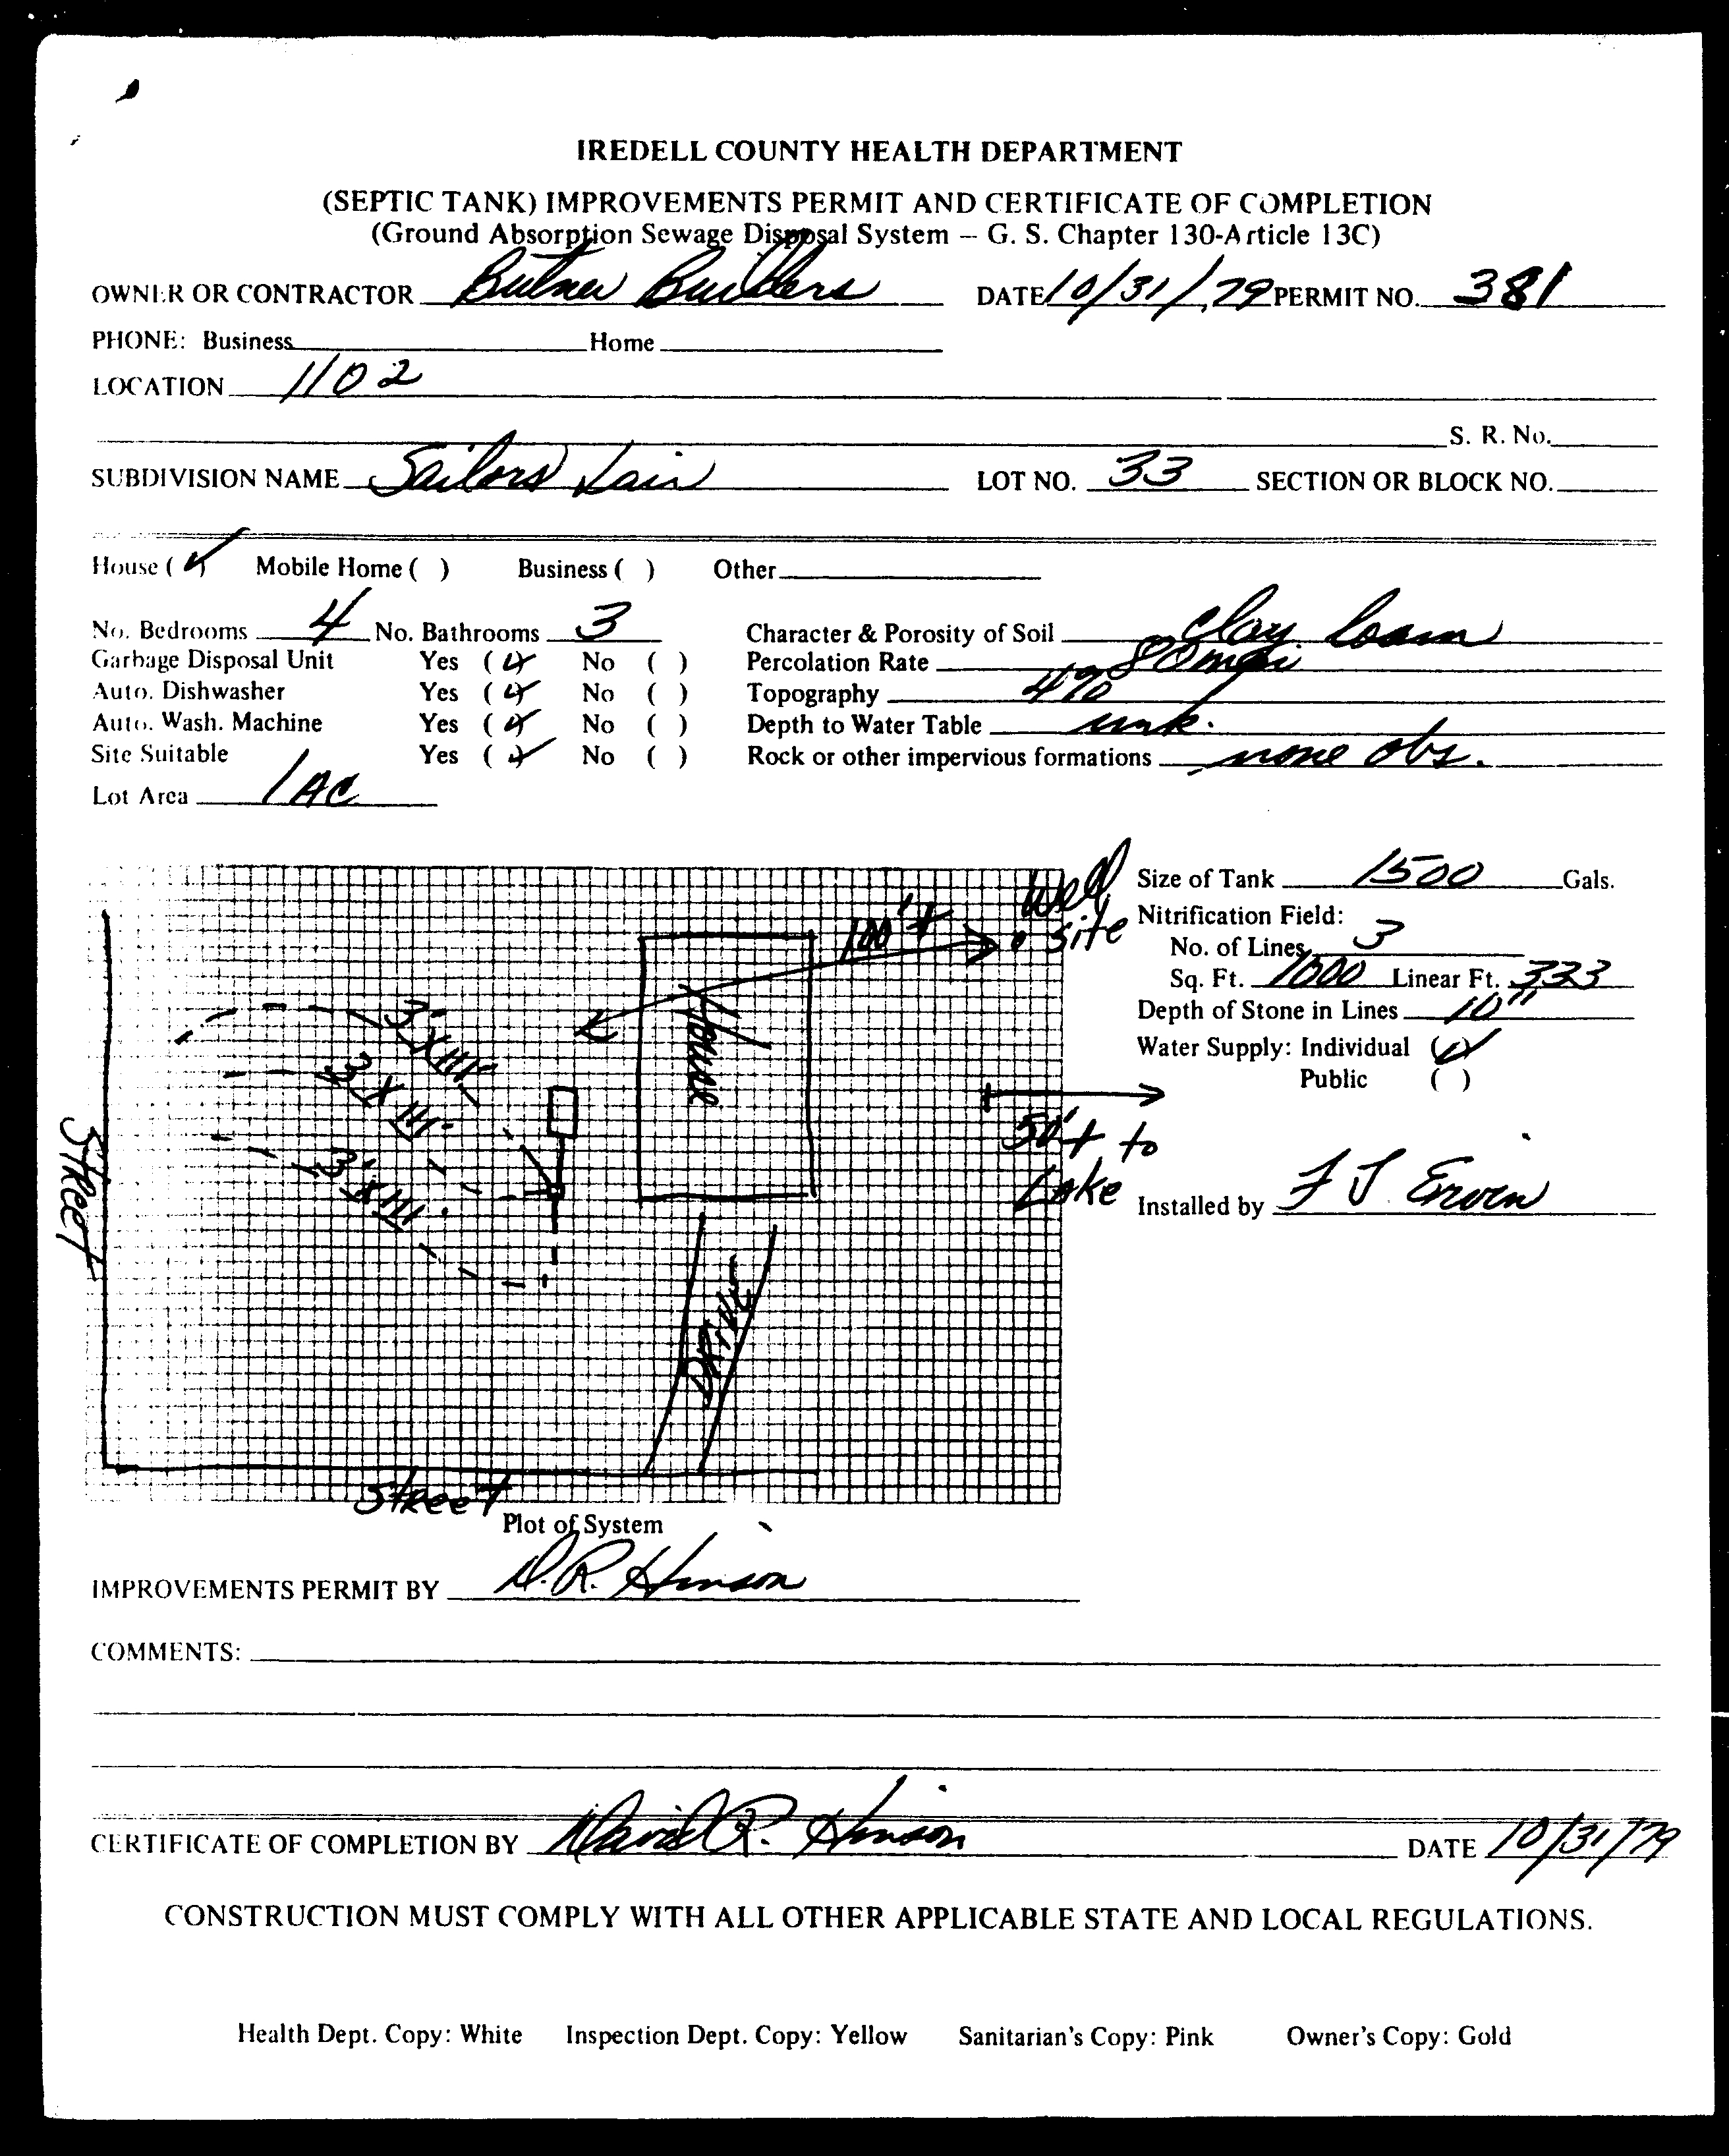 IREDELL COUNTY HEALTH DEPARTMENT
(SEPTIC TANK) IMPROVEMENTS PERMIT AND CERTIFICATE OF COMPLETION
(Ground Absorption Sewage Disposal System – G. S. Chapter 130-Article 13C)
OWNER OR CONTRACTOR Butner Builders DATE 10/31/79 PERMIT NO. 381
PHONE: Business Home
LOCATION 1102
S. R. No.
SUBDIVISION NAME Sailors Lair LOT NO. 33 SECTION OR BLOCK NO.
House (✓) Mobile Home ( ) Business ( ) Other
No. Bedrooms 4 No. Bathrooms 3 Character & Porosity of Soil clay loam
Garbage Disposal Unit Yes (✓) No ( ) Percolation Rate 80 mpi
Auto. Dishwasher Yes (✓) No ( ) Topography 4%
Auto. Wash. Machine Yes (✓) No ( ) Depth to Water Table unk.
Site Suitable Yes (✓) No ( ) Rock or other impervious formations none obs.
Lot Area 1 AC
Well site
100'+
House
3'x111'
3'x111'
3'x111'
Street
50'+ to Lake
Drive
Street
Size of Tank 1500 Gals.
Nitrification Field:
No. of Lines 3
Sq. Ft. 1000 Linear Ft. 333
Depth of Stone in Lines 10"
Water Supply: Individual (✓)
Public ( )
Installed by F J Erwin
Plot of System
IMPROVEMENTS PERMIT BY D.R. Hinson
COMMENTS:
CERTIFICATE OF COMPLETION BY David R. Hinson DATE 10/31/79
CONSTRUCTION MUST COMPLY WITH ALL OTHER APPLICABLE STATE AND LOCAL REGULATIONS.
Health Dept. Copy: White Inspection Dept. Copy: Yellow Sanitarian's Copy: Pink Owner's Copy: Gold